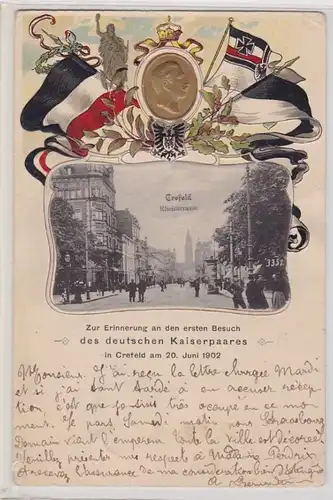 Crefeld
3352
Zur Erinnerung an den ersten Besuch
des deutschen Kaiserpaares
in Crefeld am 20. Juni 1902
Monsieur, J'ai reçu la lettre chargée Mardi
et si j'ai tant tardé à en accuser récep
tion c'est que je suis très occupé en ce mo
ment. Je pars Samedi matin pour Strasbourg
Demain vient l'empereur toute la ville est décorée
Veuillez présenter mes respects à Madame
et recevez l'assurance de ma considération